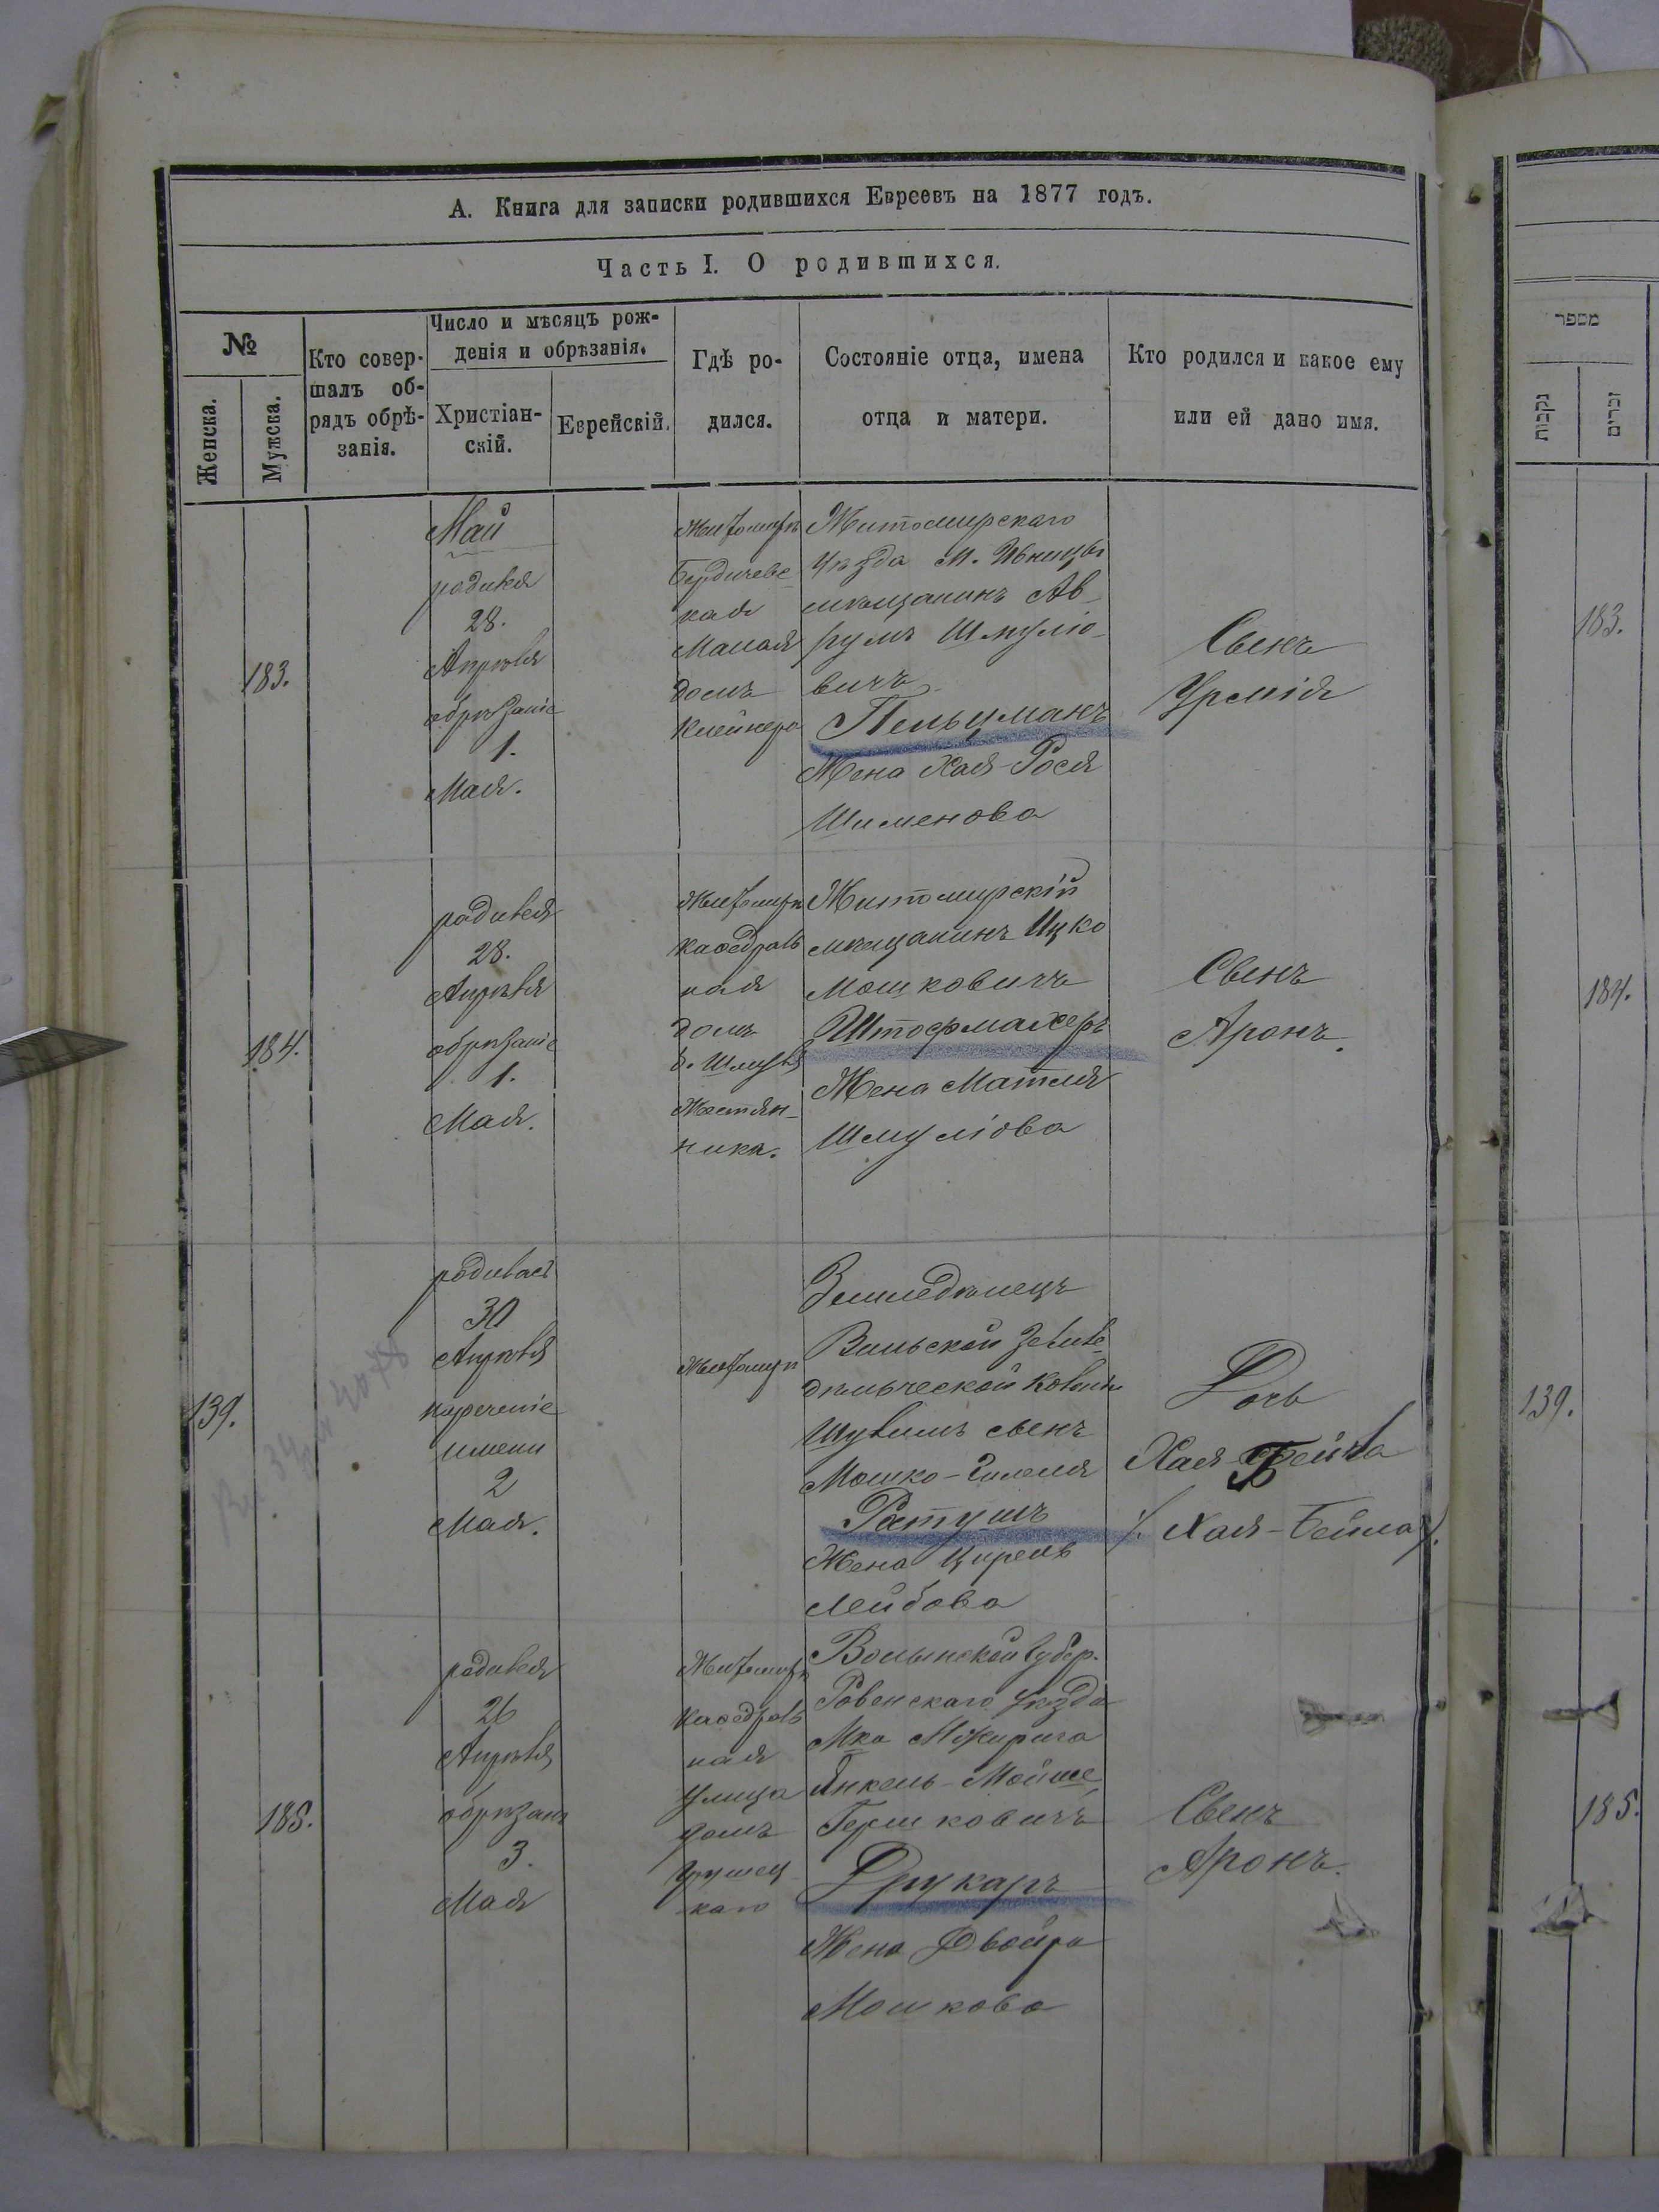 А. Книга для записки родившихся Евреевъ на 1877 годъ.
Часть I. О родившихся.
№
Женска.
Мужска.
Кто совер-
шалъ об-
рядъ обрѣ-
занія.
Число и мѣсяцъ рож-
денія и обрѣзанія.
Христіан-
скій.
Еврейскій.
Гдѣ ро-
дился.
Состояніе отца, имена
отца и матери.
Кто родился и какое ему
или ей дано имя.
183.
Май
родився
28.
Апрѣля
обрѣзаніе
1.
Мая.
Житомиръ
Бердичевс
кая
Малая
домъ
Клейнера
Житомирскаго
Уѣзда М.
мѣщанинъ Ав
румъ Шмулiо-
вичъ
Пельцманъ
Жена Хая-Рося
Шименова
Сынъ
Урмія
184.
родився
28.
Апрѣля
обрѣзаніе
1.
Мая.
Житомиръ
Каѳедраль
ная
домъ
б. Шмуля
Жестян-
ника.
Житомирскій
мѣщанинъ Ицко
Мошковичъ
Штофмахеръ
Жена Матля
Шмуліова
Сынъ
Аронъ.
139.
родилась
30
Апрѣля
нареченіе
имени
2
Мая.
Житомиръ
Земледѣлецъ
Вильской Земле
дѣльческой Колоніи
Шулимъ сынъ
Мошко-Гилеля
Ратушъ
Жена Цирель
Лейбова
Дочь
Хая-Бейла
/. Хая-Бейла/.
185.
родився
26
Апрѣля
обрѣзаніе
3.
Мая
Житомиръ
Каѳедраль
ная
улица
домъ
каго
Волынской Губер.
Ровенскаго уѣзда
Мка Межирича
Янкель-Мойше
Гершковичъ
Друкаръ
Жена Двойра
Мошкова
Сынъ
Аронъ.
מספר
נקבות
זכרים
183.
184.
139.
185.